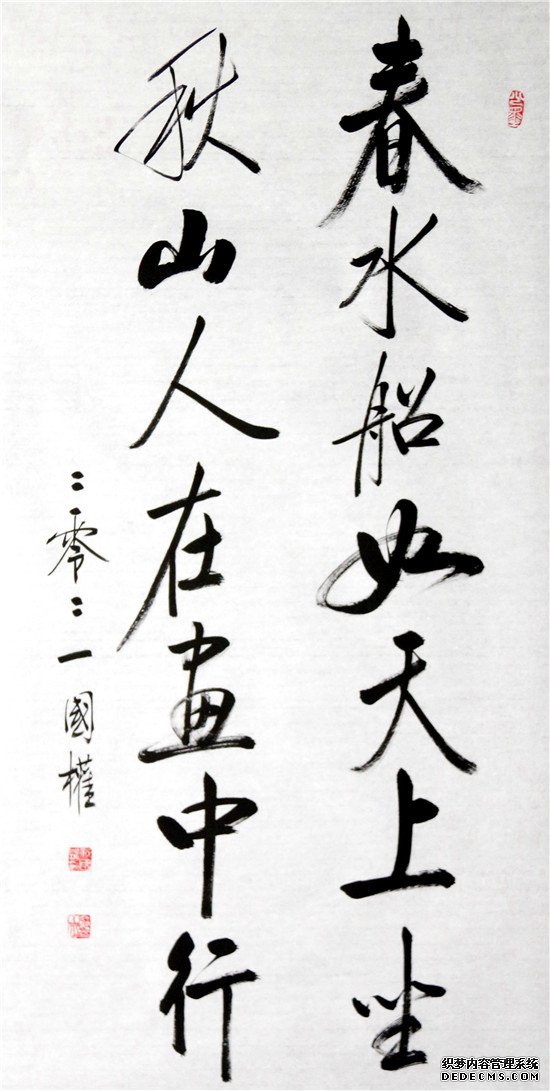 春水船如天上坐
秋山人在畫中行
二零二一國權
织梦内容管理系统
DEDECMS.COM